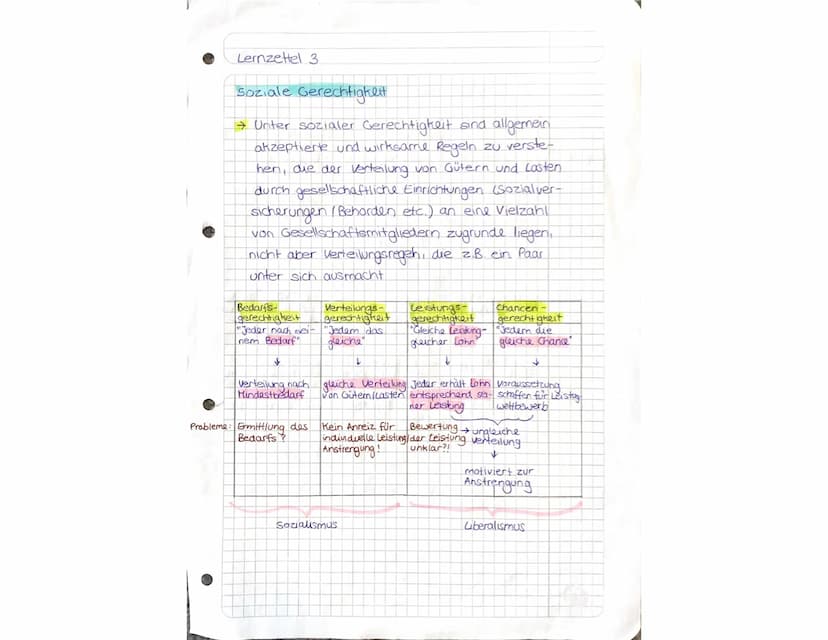 Lernzettel 3
Soziale Gerechtigkeit
→ Unter sozialer Gerechtigkeit sind allgemein
akzeptierte und wirksame Regeln zu verste-
hen, die der Verteilung von Gütern und Lasten
durch gesellschaftliche Einrichtungen (Sozialver-
sicherungen / Behörden etc.) an eine Vielzahl
von Gesellschaftsmitgliedern zugrunde liegen,
nicht aber Verteilungsregeln, die z.B. ein Paar
unter sich ausmacht
Bedarfs-
gerechtigkeit
"Jeder nach sei-
nem Bedarf"
↓
Verteilung nach
Mindestbedarf
Probleme: Ermittlung des
Bedarfs?
Verteilungs-
gerechtigkeit
"Jedem das
gleiche"
↓
gleiche Verteilung
von Gütern/Lasten
Kein Anreiz für
individuelle Leistung/
Anstrengung!
Leistungs-
gerechtigkeit
"Gleiche Leistung-
gleicher Lohn"
↓
Jeder erhält Lohn
entsprechend sei-
ner Leistung
Bewertung
der Leistung
unklar?!
Chancen-
gerechtigkeit
"Jedem die
gleiche Chance"
↓
Voraussetzung
schaffen für Leistungs-
wettbewerb
→ ungleiche
Verteilung
↓
motiviert zur
Anstrengung
Sozialismus
Liberalismus